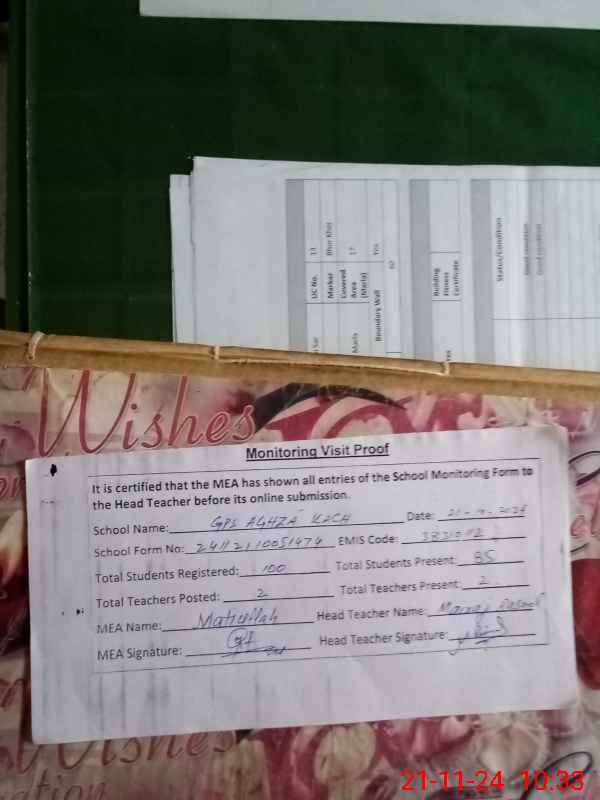 UC No. 13
Marker Bhor Khel
Covered Area (Marla) 17
Marla
Boundary Wall Yes
Building Fitness Certificate
Status/Condition
Good condition
Good condition
Wishes
Monitoring Visit Proof
It is certified that the MEA has shown all entries of the School Monitoring Form to
the Head Teacher before its online submission.
School Name: GPS AGHZA KACH Date:
School Form No: 24112110051474 EMIS Code:
Total Students Registered: 100 Total Students Present: 85
Total Teachers Posted: 2 Total Teachers Present: 2
MEA Name: Matiullah Head Teacher Name:
MEA Signature: Head Teacher Signature:
Wishes
21-11-24 10:33